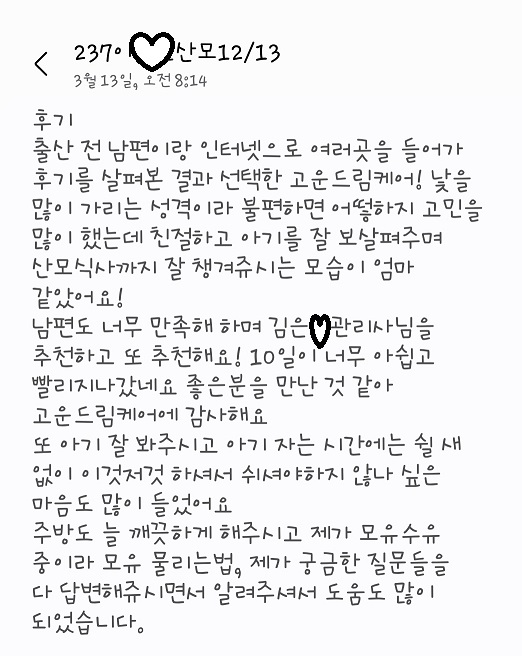 237이 산모12/13
3월 13일, 오전 8:14
후기
출산 전 남편이랑 인터넷으로 여러곳을 들어가
후기를 살펴본 결과 선택한 고운드림케어! 낯을
많이 가리는 성격이라 불편하면 어떻하지 고민을
많이 했는데 친절하고 아기를 잘 보살펴주며
산모식사까지 잘 챙겨쥬시는 모습이 엄마
같았어요!
남편도 너무 만족해 하며 김은 관리사님을
추천하고 또 추천해요! 10일이 너무 아쉽고
빨리지나갔네요 좋은분을 만난 것 같아
고운드림케어에 감사해요
또 아기 잘 봐주시고 아기 자는 시간에는 쉴 새
없이 이것저것 하셔서 쉬셔야하지 않나 싶은
마음도 많이 들었어요
주방도 늘 깨끗하게 해주시고 제가 모유수유
중이라 모유 물리는법, 제가 궁금한 질문들을
다 답변해쥬시면서 알려주셔서 도움도 많이
되었습니다.